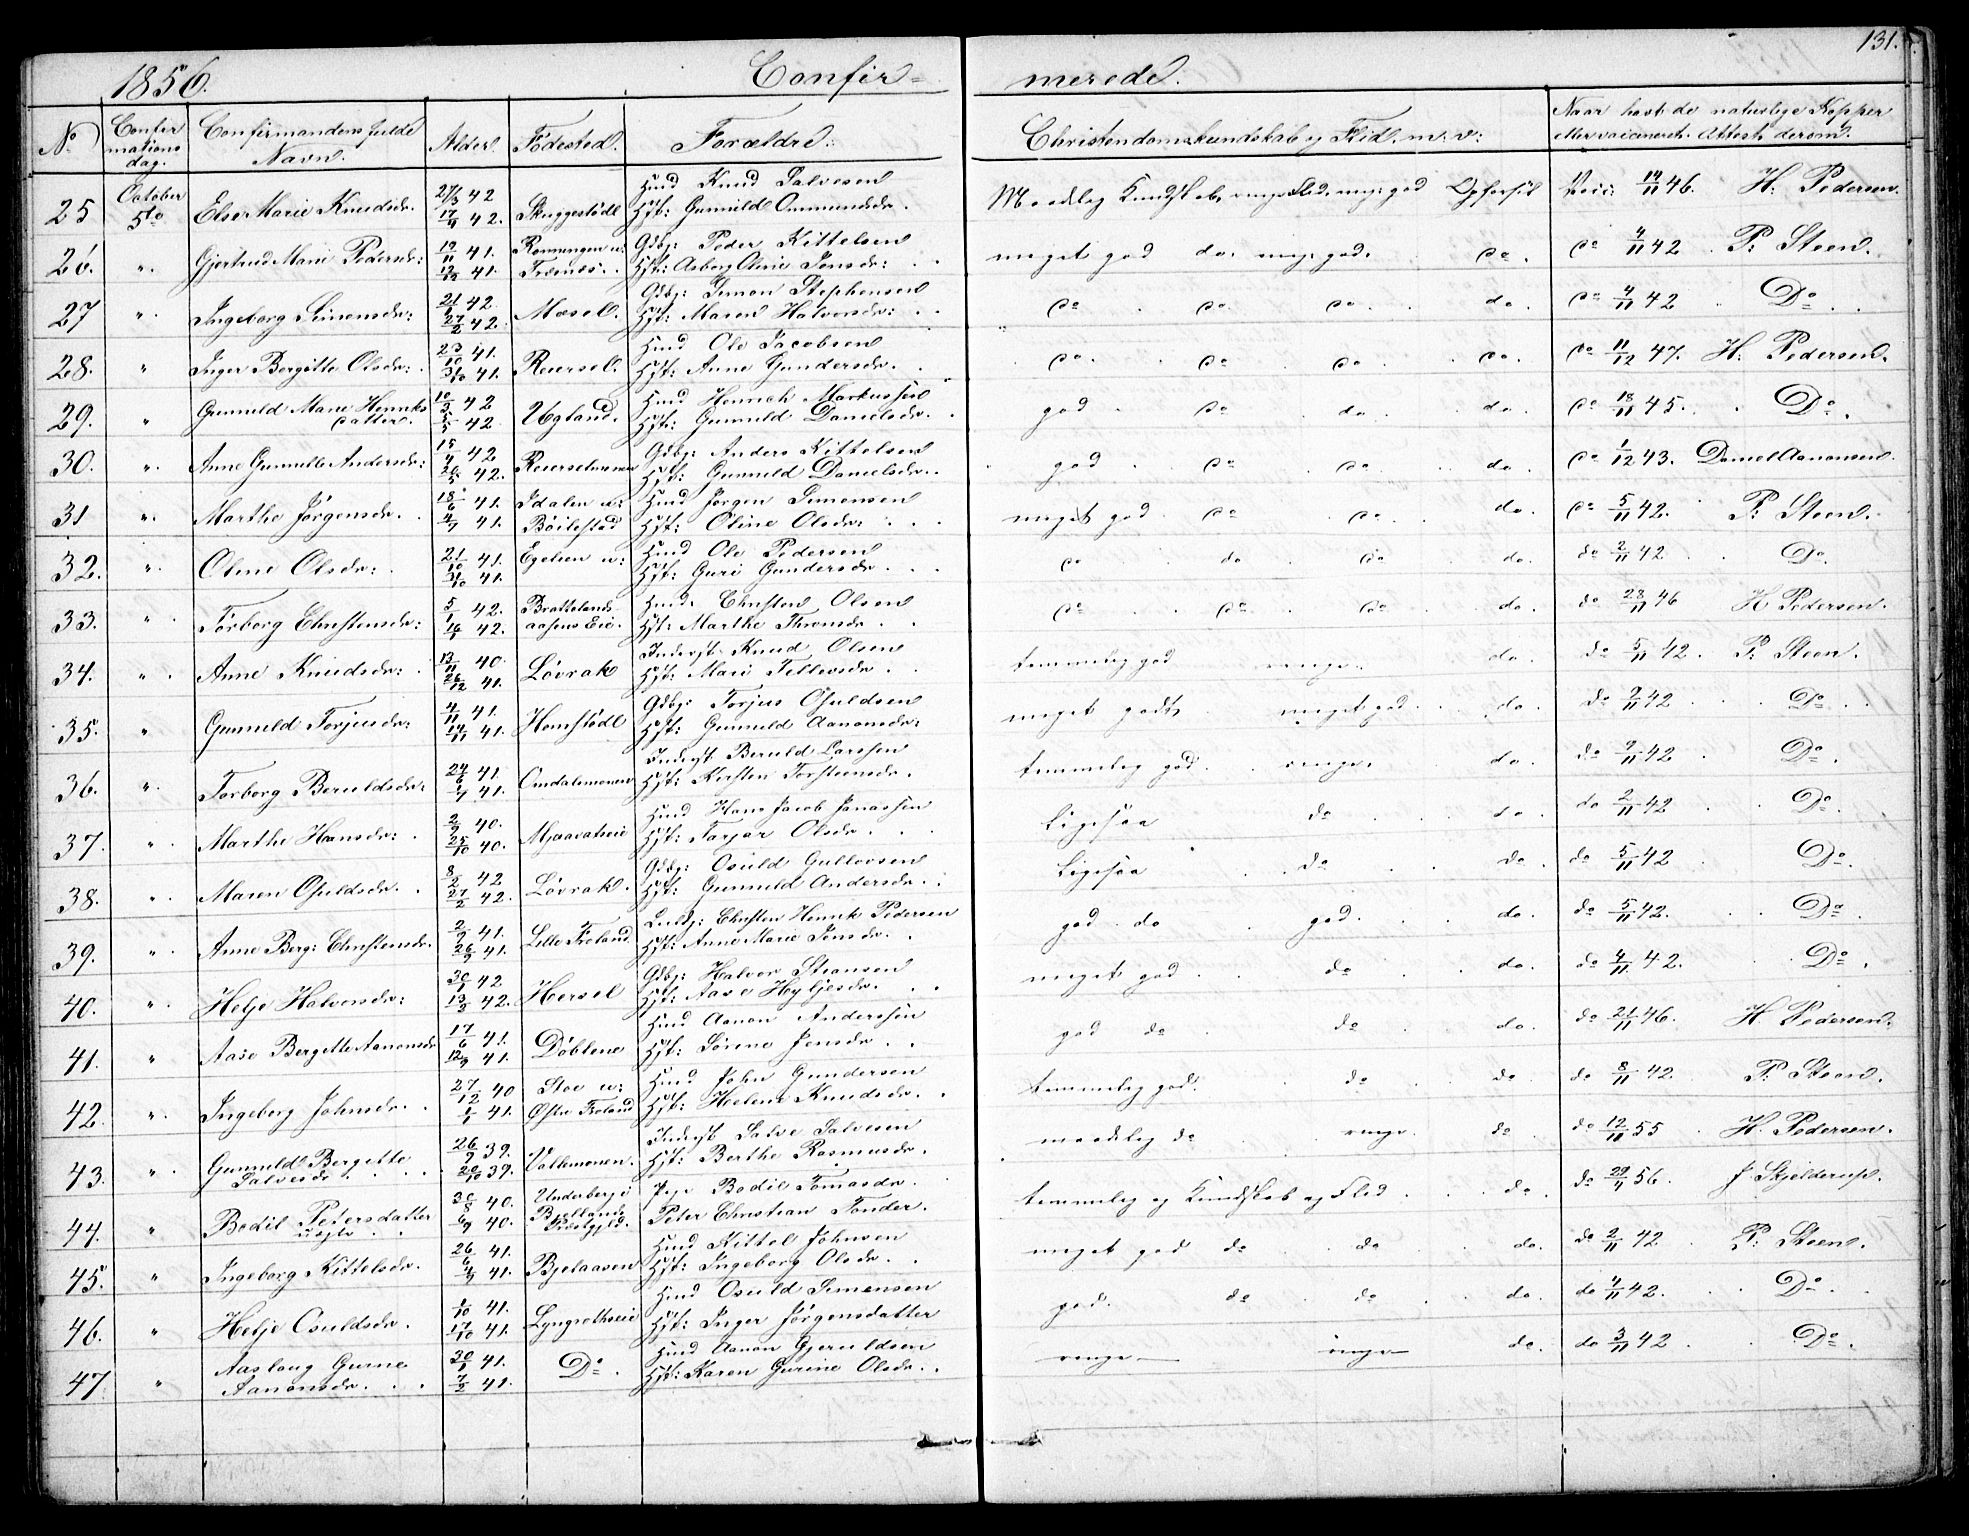 131.
1856. Confirmerede.
No Confirmations dag. Confirmandens fulde Navn. Alder. Fødested. Forældre. Christendomskundskab og Flid. m: v: Naar havt de naturlige Kopper eller vaccineret. Attest derom.
25 October 5te Else Marie Knudsdr. 27/3 42 17/4 42. Skuggestødl Huusmd Knud Salvesen Hst: Gunnild Ommundsdr. Maadelig Kundskab, ringe Flid, meg: god Opførsel Vac: 14/11 46. H: Pedersen.
26. " Gjertrud Marie Pedersdr: 19/11 41. 12/12 41. Rønningen u: Trænes. Gdbr: Peder Kittelsen Hst: Asborg Oline Jensdr: meget god do. meg: god. do. do 4/11 42 P: Steen.
27 " Ingeborg Simonsdr: 21/1 42. 27/2 42. Mosel. Gdbr: Simon Stephensen Hst: Maren Halvorsdr: do do do do do 4/11 42 Do
28. " Inger Bergitte Olsdr: 23/10 41. 31/10 41. Reiersel. Hmd Ole Jacobsen Hst: Anne Gundersdr. do. do do do. do 11/12 47. H: Pedersen.
29. " Gunnild Marie Henriksdatter. 10/3 42 5/5 42. Ugland. Hmd Henrich Markussen Hst: Gunnild Danielsdr. god do do do. do 18/11 45. Do.
30. " Anne Gunnille Andersdr: 15/4 42 20/5 42. Reierselmonen Gdbr: Anders Kittelsen Hst: Gunnild Danielsdr. god do do do. do 1/12 43. Daniel Aanonsen.
31 " Marthe Jørgensdr. 18/6 41. 4/7 41. Idalen u: Bøilestad Hmd Jørgen Simonsen Hst: Oline Olsdr: meget god do do. do. do 5/11 42. P: Steen.
32. " Oline Olsdr: 21/10 41. 31/10 41. Egelien u: Hmd Ole Pedersen Hst: Guri Gundersdr. do do do do do 2/11 42. Do.
33. " Torborg Christensdr: 5/1 42. 16/1 42. Brattelandsaasens Eie. Hmd. Christen Olsen Hst: Marthe Thronsdr. do do do do. do 28/11 46 H Pedersen.
34. " Anne Knudsdr: 13/11 40. 26/12 41. Løvrak Inderst Knud Olsen Hst: Mari Tellevsdr. temmelig god ringe. do. do 5/11 42. P: Steen.
35. " Gunnild Torjusdr: 4/11 41. 14/11 41. Homstødl Gdbr: Torjus Osuldsen Hst: Gunnild Aanonsdr: meget godt meget god do. do 2/11 42 Do
36. " Torborg Beruldsdr: 24/6 41. 4/7 41. Omdalsmonen Inderst Beruld Larssen Hst: Kirsten Torstensdr. temmelig god. ringe. do. do 4/11 42 Do.
37. " Marthe Hansdr: 2/9 40. 25/10 40. Mjaavatneie Hmd Hans Jacob Jonassen Hst: Tarjær Olsdr. Ligesaa do do. do 2/11 42 Do.
38. " Maren Osuldsdr. 8/2 42 27/2 42. Løvrak. Gdbr: Osuld Gullovsen Hst: Gunnild Andersdr. Ligesaa do do do 5/11 42 Do.
39. " Anne Berg: Christensdr. 2/9 41. 26/9 41. Lille Froland Christen Henrik Pedersen Hst: Anne Marie Jensdr. god do god. do. do 5/11 42. Do.
40. " Helje Halvorsdr: 30/1 42 13/3 42. Hersel Gdbr: Halvor Steansen Hst: Aase Heljesdr. meget god do do. do 4/11 42. Do.
41. " Aase Bergitte Aanonsdr. 17/6 41. 12/9 41. Døblene Hmd Aanon Anderssen Hst: Sørine Jensdr. god do do do. do 21/11 46. H Pedersen.
42. " Ingeborg Johnsdr. 27/12 40 1/1 41. Stoe u: Østre Froland Hmd John Gundersen Hst: Helene Knudsdr. temmelig god. do do do 8/11 42. P: Steen.
43. " Gunnild Bergitte Salvesdr. 26/9 39. 20/10 39. Vallemonen. Inderst Salve Salvesen Hst: Berthe Rasmusdr. maadelig do ringe. do do 12/11 55 H. Pedersen.
44. " Bodil Petersdatter uægte 30/8 40. 6/9 40. Underberje Bjellands Præstgjld. Pige Bodil Tomasdr. Peter Christian Tonder. temmelig og Kundskab og Flid do. do 29/4 56. J Skjelderup.
45. " Ingeborg Kittelsdr. 26/6 41. 4/7 41. Bjelaasen Hmd Kittel Johnsen Hst: Ingeborg Olsdr. meget god do do do. do 2/11 42 P: Steen.
46. " Helje Osuldsdr. 1/10 41. 17/10 41. Lyngrothseie Hmd Osuld Simensen Hst: Inger Jørgensdatter god. do do do. do 4/11 42. Do
47. " Aaslaug Gurine Aanonsdr. 20/1 41. 7/2 41. Do. Hmd Aanon Gjeruldsen Hst: Karen Gurine Olsdr. ringe ringe do. do 3/11 42 Do.